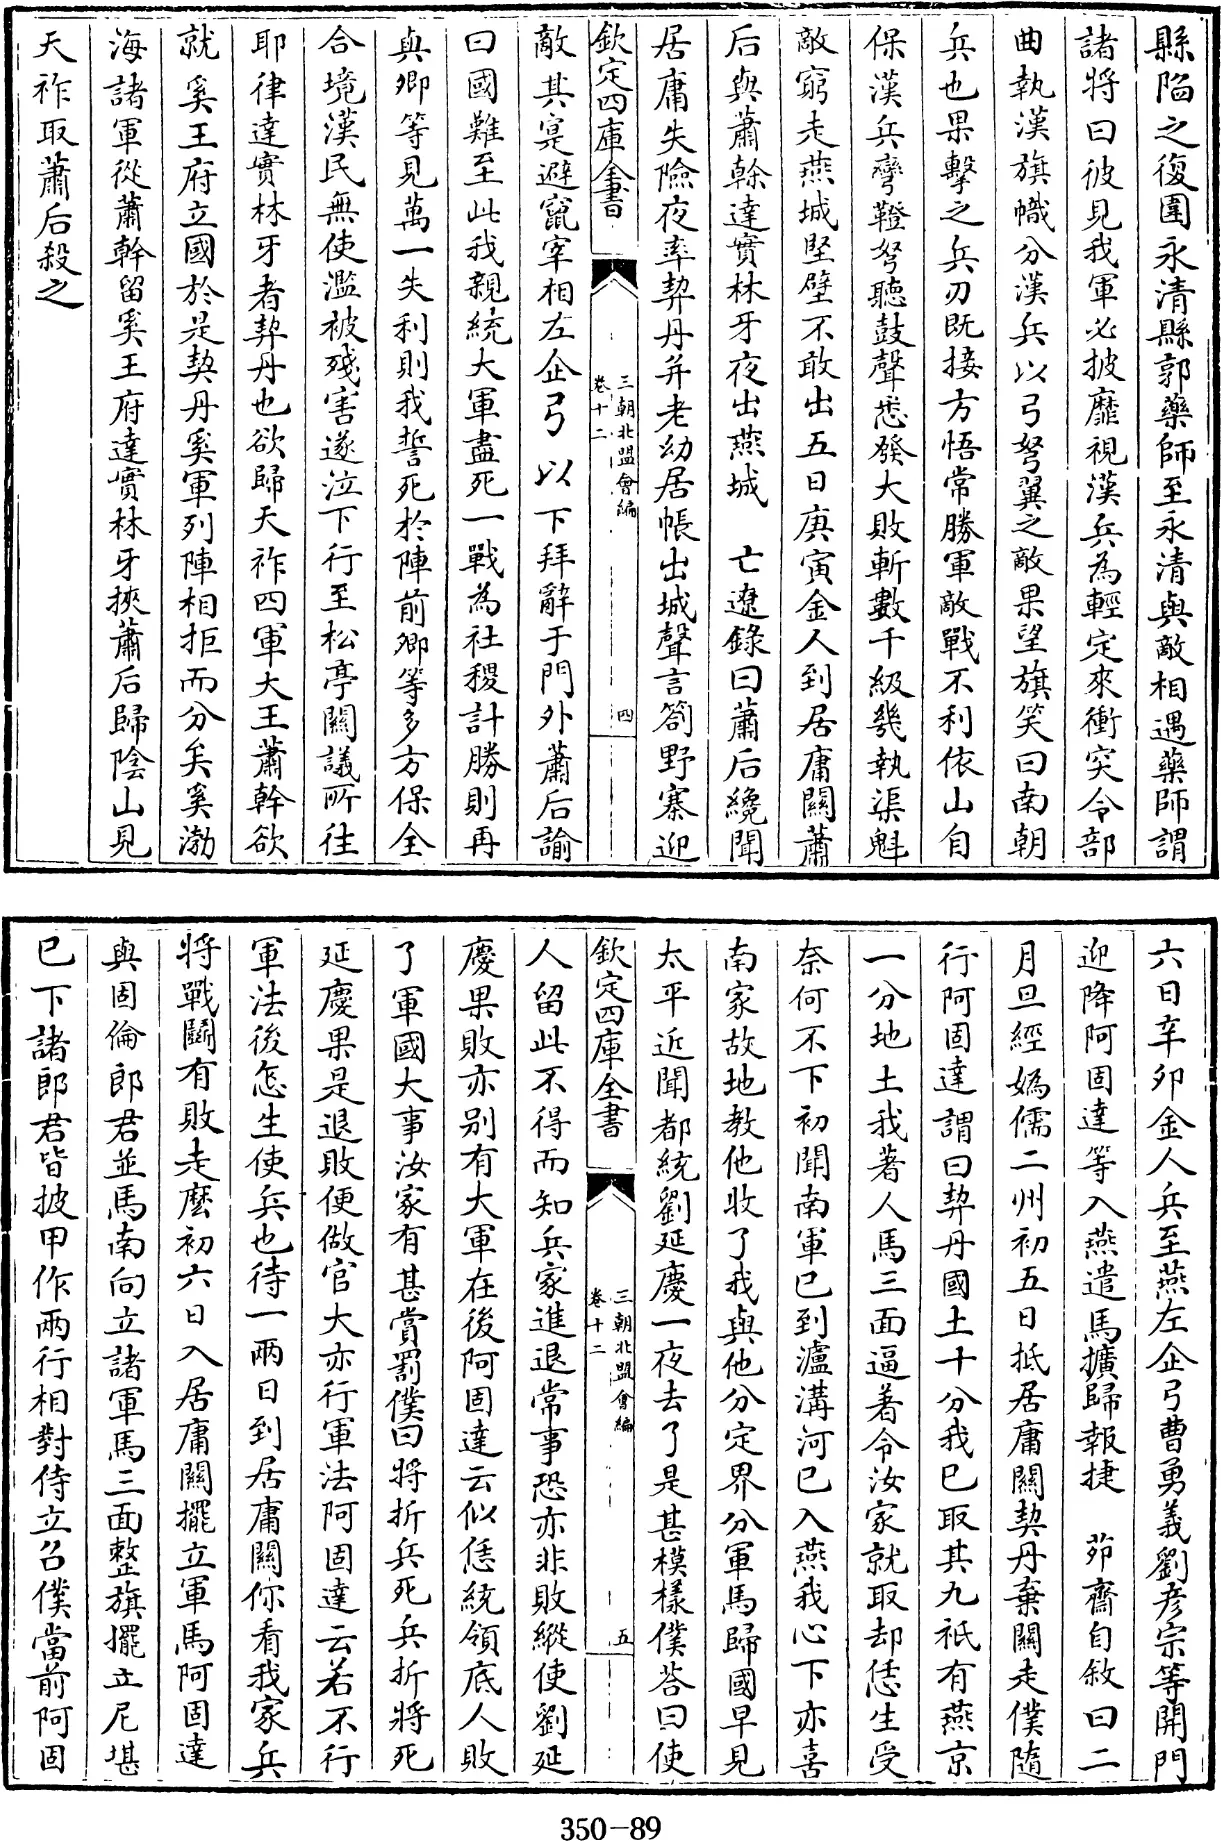 縣陷之復圍永清縣郭藥師至永清與敵相遇藥師謂
諸將曰彼見我軍必披靡視漢兵為輕定來衝突令部
曲執漢旗幟分漢兵以弓弩翼之敵果望旗笑曰南朝
兵也果擊之兵刃既接方悟常勝軍敵戰不利依山自
保漢兵彎鞬弩聽鼓聲悉發大敗斬數千級幾執渠魁
敵窮走燕城堅壁不敢出五日庚寅金人到居庸關蕭
后與蕭幹達實林牙夜出燕城　亡遼錄曰蕭后纔聞
居庸失險夜率契丹并老幼居帳出城聲言劄野寨迎
欽定四庫全書
三朝北盟會編
卷十二
四
敵其寔避竄宰相左企弓以下拜辭于門外蕭后諭
曰國難至此我親統大軍盡死一戰為社稷計勝則再
與卿等見萬一失利則我誓死於陣前卿等多方保全
合境漢民無使濫被殘害遂泣下行至松亭關議所往
耶律達實林牙者契丹也欲歸天祚四軍大王蕭幹欲
就奚王府立國於是契丹奚軍列陣相拒而分矣奚渤
海諸軍從蕭幹留奚王府達實林牙挾蕭后歸陰山見
天祚取蕭后殺之
六日辛卯金人兵至燕左企弓曹勇義劉彥宗等開門
迎降阿固達等入燕遣馬擴歸報捷　茆齋自敘曰二
月旦經媯儒二州初五日抵居庸關契丹棄關走僕隨
行阿固達謂曰契丹國土十分我已取其九祗有燕京
一分地土我著人馬三面逼著令汝家就取却恁生受
奈何不下初聞南軍已到瀘溝河已入燕我心下亦喜
南家故地教他收了我與他分定界分軍馬歸國早見
太平近聞都統劉延慶一夜去了是甚模樣僕荅曰使
欽定四庫全書
三朝北盟會編
卷十二
五
人留此不得而知兵家進退常事恐亦非敗縱使劉延
慶果敗亦别有大軍在後阿固達云似恁統領底人敗
了軍國大事汝家有甚賞罰僕曰將折兵死兵折將死
延慶果是退敗便做官大亦行軍法阿固達云若不行
軍法後怎生使兵也待一兩日到居庸關你看我家兵
將戰鬭有敗走麼初六日入居庸關擺立軍馬阿固達
與固倫郎君並馬南向立諸軍馬三面整旗擺立尼堪
已下諸郎君皆披甲作兩行相對侍立召僕當前阿固
350-89